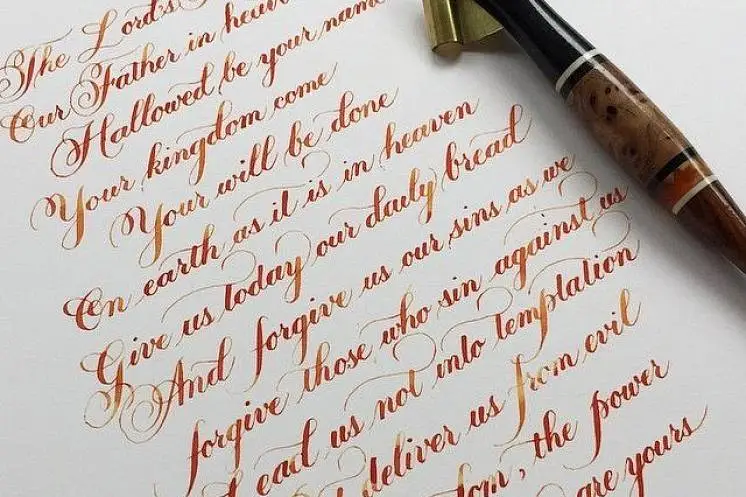 The Lord's
Our Father in heaven
Hallowed be your name
Your kingdom come
Your will be done
On earth as it is in heaven
Give us today our daily bread
And forgive us our sins as we
forgive those who sin against us
Lead us not into temptation
deliver us from evil
the power
are yours